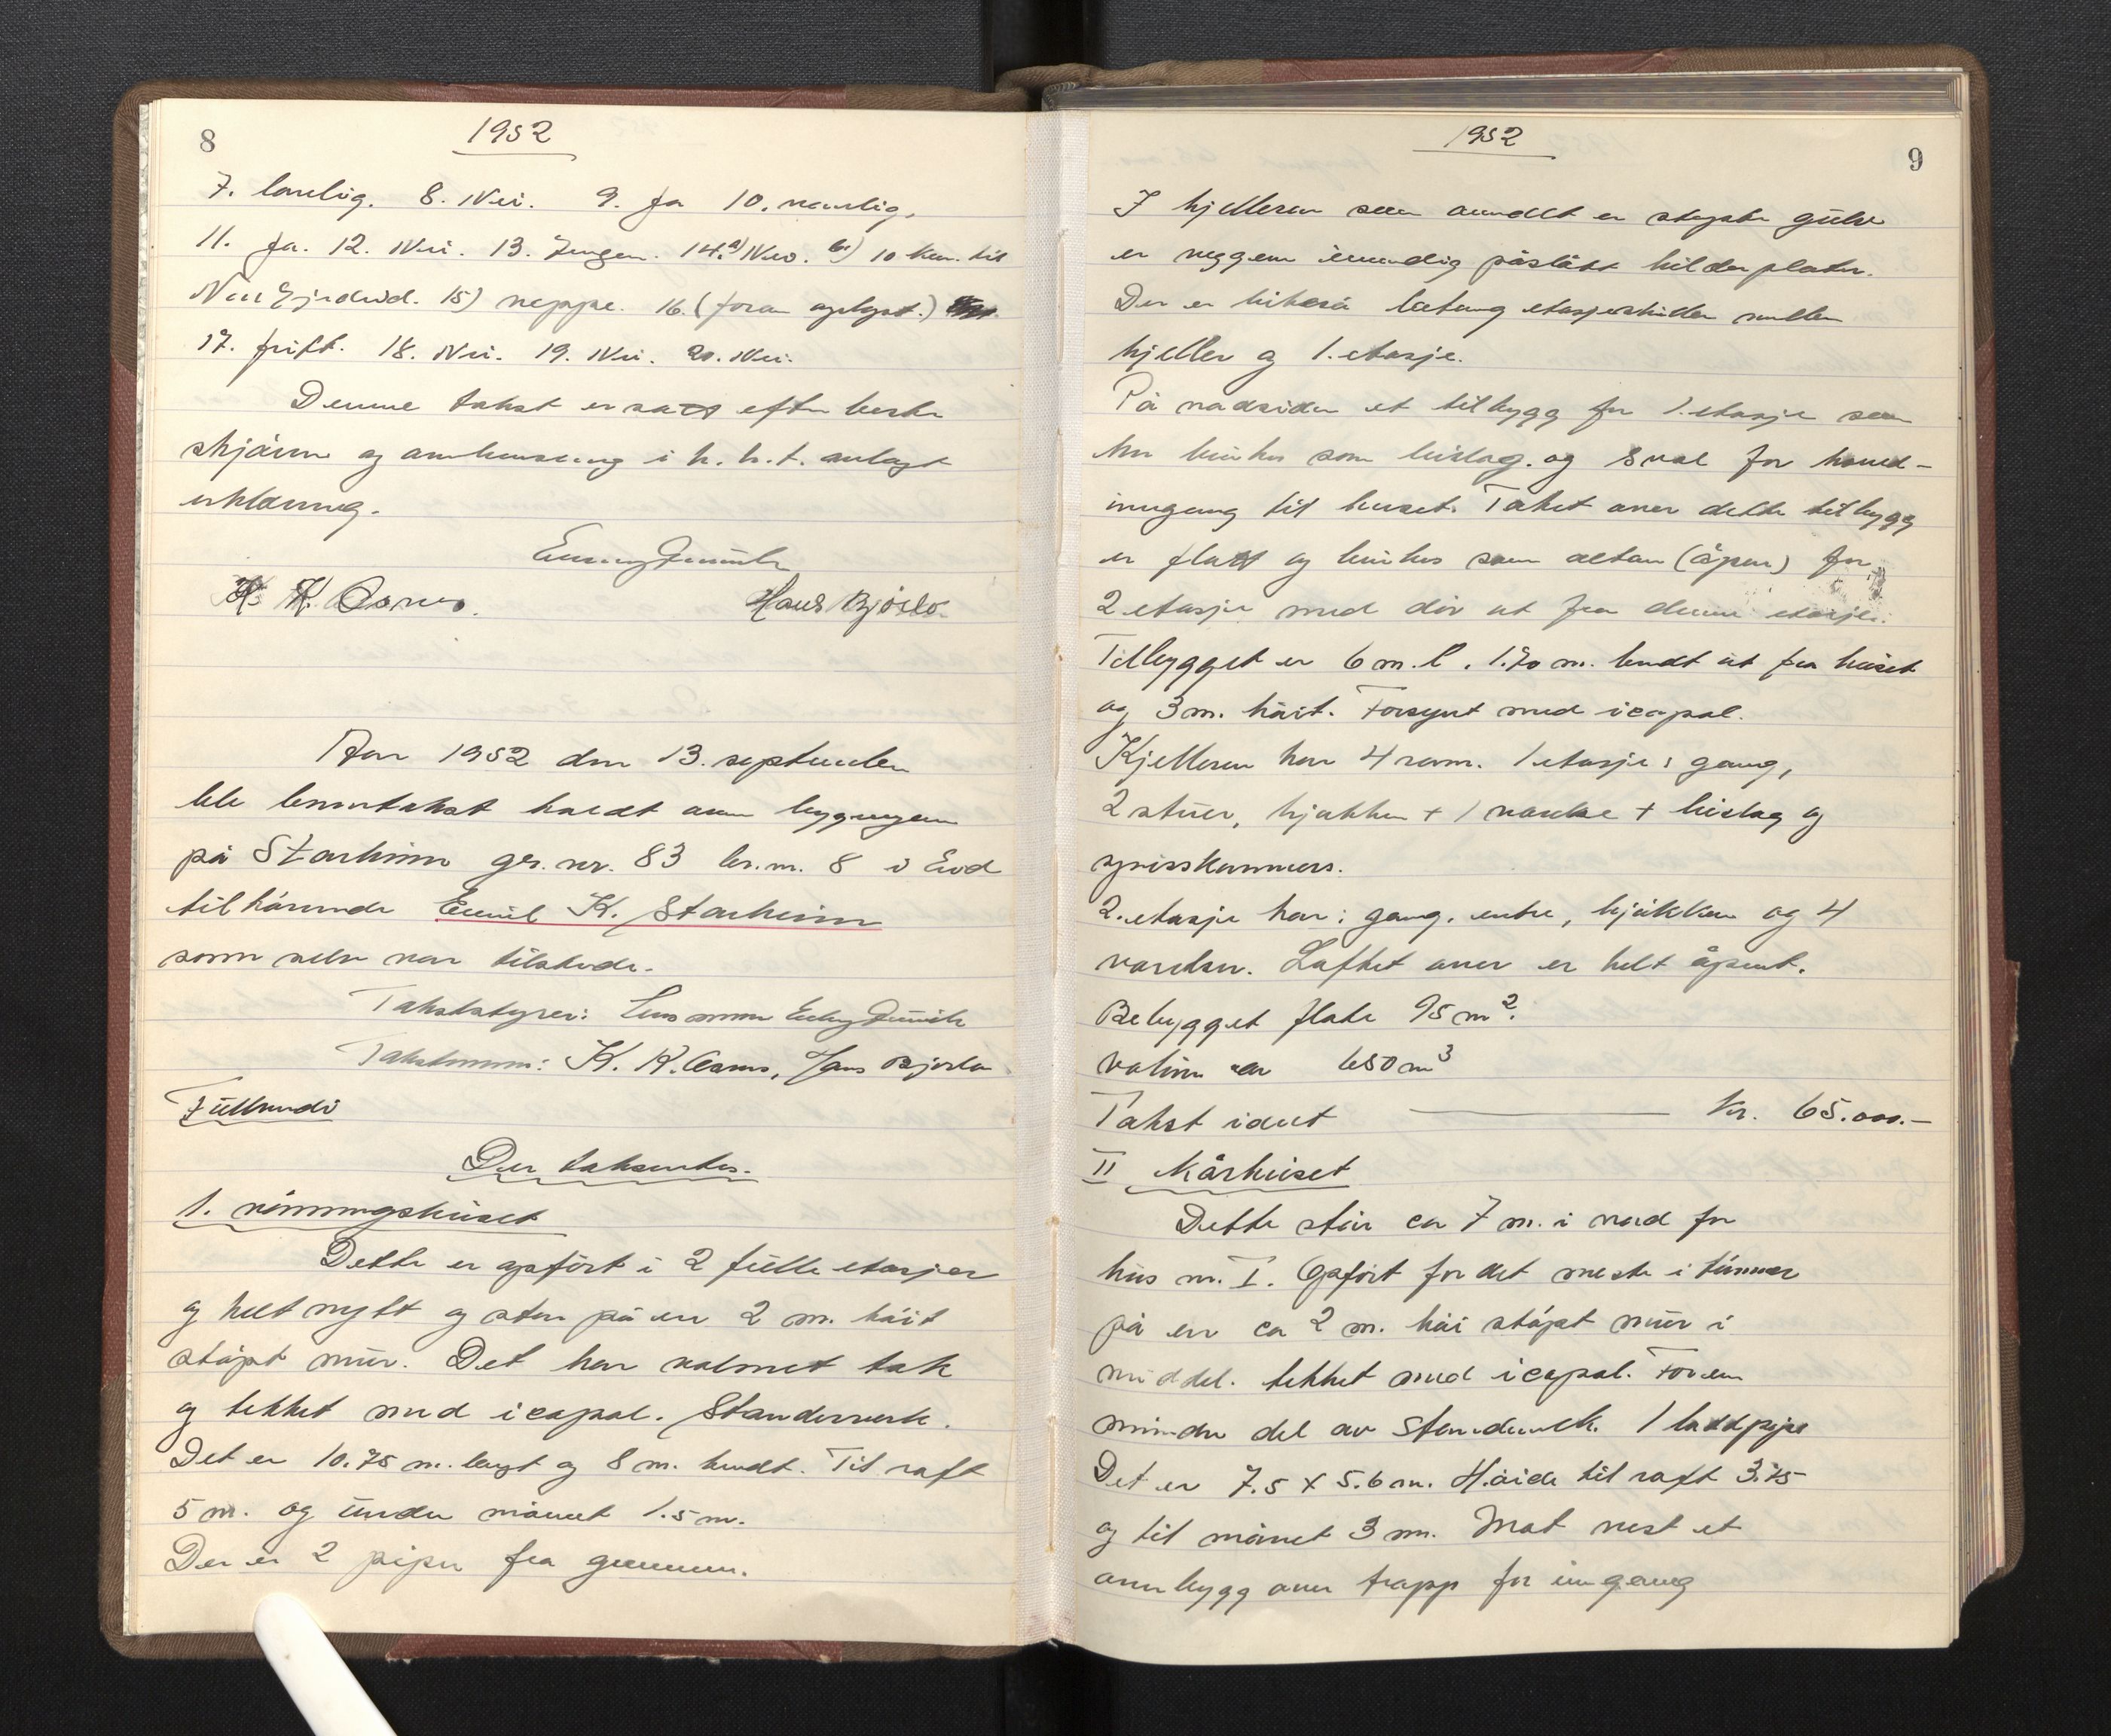 8
1952
7. lovelig. 8. Nei. 9. Ja 10. vanlig,
11. Ja. 12. Nei. 13. Ingen. 14. a) Nei. b) 10 km. til
Nordfjordeid. 15) neppe. 16. (foran oplyst.)
17. frift. 18. Nei. 19. Nei. 20. Nei.
Denne takst er satt efter beste
skjønn og overbevisning i h. h. t. avlagt
erklæring.
K. K. Aarnes. Hans Bjørlo
Aar 1952 den 13. september
ble branntakst holdt over bygningene
på Starheim gr. nr. 83 br. nr. 8 i Eid
tilhørende Emil K. Starheim
som selv var tilstede.
Takststyrer: Lensmann
Takstmenn: K. K. Aarnes, Hans Bjørlo
Der takseres.
1. våningshuset
Dette er opført i 2 fulle etasjer
og helt nytt og står på en 2 m. høit
støpt mur. Det har valmet tak
og tekket med icopal. Standerverk.
Det er 10.75 m. langt og 8 m. bredt. Til raft
5 m. og under mønet 1.5 m.
Der er 2 piper fra grunnen.
1952
9
I kjelleren som overalt er støpte gulv
er veggene innvendig påslått bilderplater.
Der er likeså betong etasjeskiller mellem
kjeller og 1. etasje.
På nordsiden et tilbygg for 1. etasje som
her brukes som bislag. og sval for hoved-
inngang til huset. Taket over dette tilbygg
er flatt og brukes som altan (åpen) for
2 etasje med dør ut fra denne etasje.
Tilbygget er 6 m. l. 1.70 m. bredt ut fra huset
og 3 m. høit. Forsynt med icopal.
Kjelleren har 4 rom. 1 etasje: gang,
2 stuer, kjøkken + 1 værelse + bislag og
spisskammers.
2. etasje har: gang. entre, kjøkken og 4
værelser. Loftet over er helt åpent.
Bebygget flate 95 m².
volum ca 650 m³
Takst idet — kr. 65.000.-
II Kårhuset
Dette står ca 7 m. i nord for
hus nr. I. Opført for det meste i tømmer
på en ca 2 m. høi støpt mur i
middel. tekket med icopal. For en
mindre del av standerverk. 1 loddpipe
Det er 7.5 x 5.6 m. Høide til raft 3.75
og til mønet 3 m. Mot vest et
overbygg over trapp for inngang